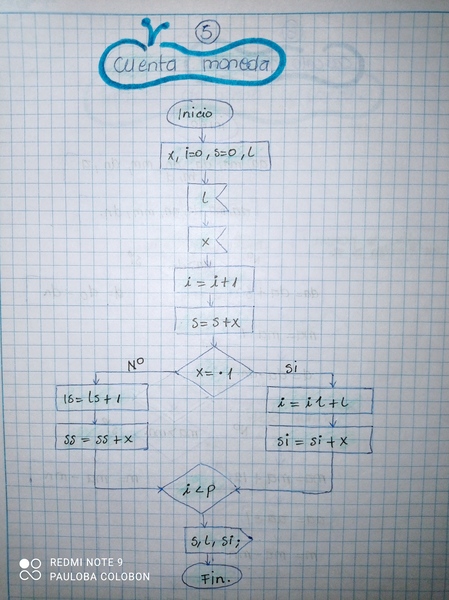 5
Cuenta moneda
Inicio
x, i=0, s=0, l
l
x
i = i+1
s = s+x
x = ·1
NO
si
is = is + 1
i = i1 + l
ss = ss + x
si = si + x
i < p
s, l, si;
Fin.
REDMI NOTE 9
PAULOBA COLOBON